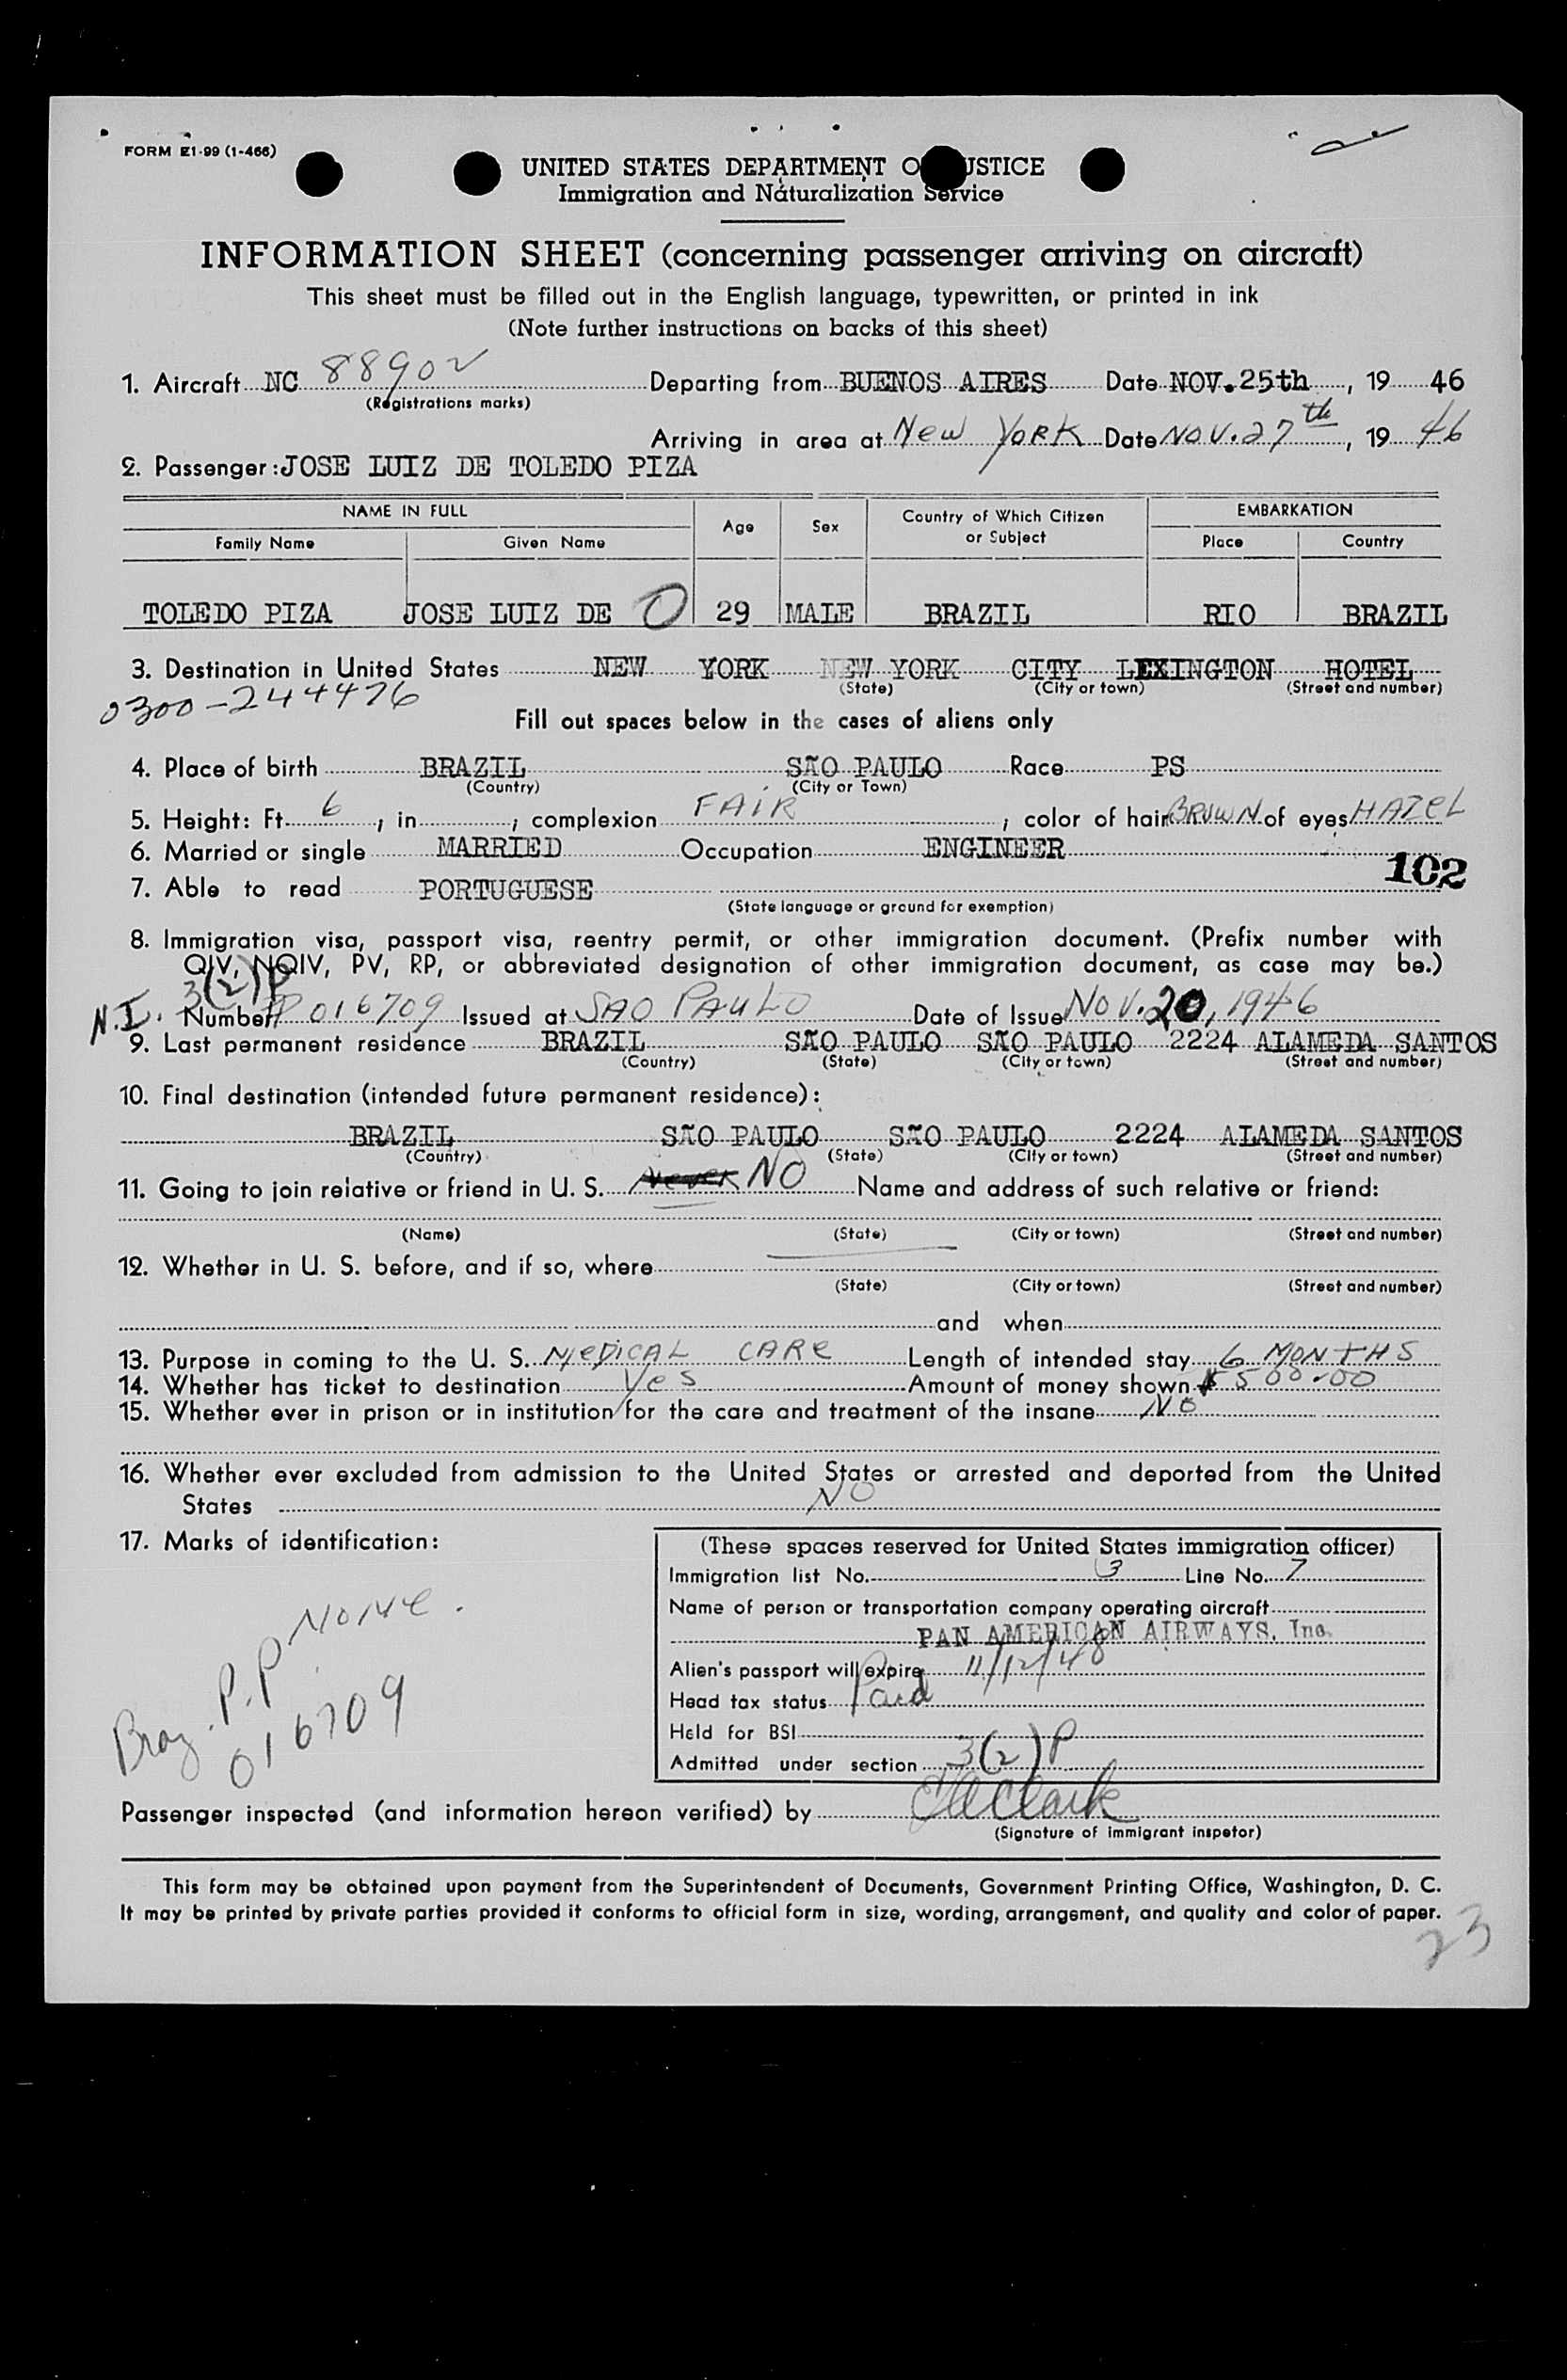 FORM E1-99 (1-466)
UNITED STATES DEPARTMENT O USTICE
Immigration and Naturalization Service
INFORMATION SHEET (concerning passenger arriving on aircraft)
This sheet must be filled out in the English language, typewritten, or printed in ink
(Note further instructions on backs of this sheet)
1. Aircraft NC 88902 Departing from BUENOS AIRES Date NOV. 25th, 19 46
(Registrations marks)
Arriving in area at New York Date NOV. 27th, 19 46
2. Passenger: JOSE LUIZ DE TOLEDO PIZA
NAME IN FULL Age Sex Country of Which Citizen or Subject EMBARKATION
Family Name Given Name Place Country
TOLEDO PIZA JOSE LUIZ DE O 29 MALE BRAZIL RIO BRAZIL
3. Destination in United States NEW YORK NEW YORK CITY LEXINGTON HOTEL
(State) (City or town) (Street and number)
0300-244476
Fill out spaces below in the cases of aliens only
4. Place of birth BRAZIL SÃO PAULO Race PS
(Country) (City or Town)
5. Height: Ft. 6, in , complexion FAIR , color of hair BROWN of eyes HAZEL
6. Married or single MARRIED Occupation ENGINEER
102
7. Able to read PORTUGUESE
(State language or ground for exemption)
8. Immigration visa, passport visa, reentry permit, or other immigration document. (Prefix number with
QIV, NQIV, PV, RP, or abbreviated designation of other immigration document, as case may be.)
3(2)P
N.I. Number PP 016709 Issued at SAO PAULO Date of Issue NOV. 20, 1946
9. Last permanent residence BRAZIL SÃO PAULO SÃO PAULO 2224 ALAMEDA SANTOS
(Country) (State) (City or town) (Street and number)
10. Final destination (intended future permanent residence):
BRAZIL SÃO PAULO SÃO PAULO 2224 ALAMEDA SANTOS
(Country) (State) (City or town) (Street and number)
11. Going to join relative or friend in U. S. Never NO Name and address of such relative or friend:
(Name) (State) (City or town) (Street and number)
12. Whether in U. S. before, and if so, where
(State) (City or town) (Street and number)
and when
13. Purpose in coming to the U. S. MEDICAL CARE Length of intended stay 6 MONTHS
14. Whether has ticket to destination Yes Amount of money shown $500.00
15. Whether ever in prison or in institution for the care and treatment of the insane NO
16. Whether ever excluded from admission to the United States or arrested and deported from the United
States NO
17. Marks of identification:
None.
Braz. P.P.
016709
(These spaces reserved for United States immigration officer)
Immigration list No. 3 Line No. 7
Name of person or transportation company operating aircraft
PAN AMERICAN AIRWAYS, Inc.
Alien's passport will expire 11/12/48
Head tax status Paid
Held for BSI
Admitted under section 3(2)P
Passenger inspected (and information hereon verified) by Clark
(Signature of immigrant inspetor)
This form may be obtained upon payment from the Superintendent of Documents, Government Printing Office, Washington, D. C.
It may be printed by private parties provided it conforms to official form in size, wording, arrangement, and quality and color of paper.
23